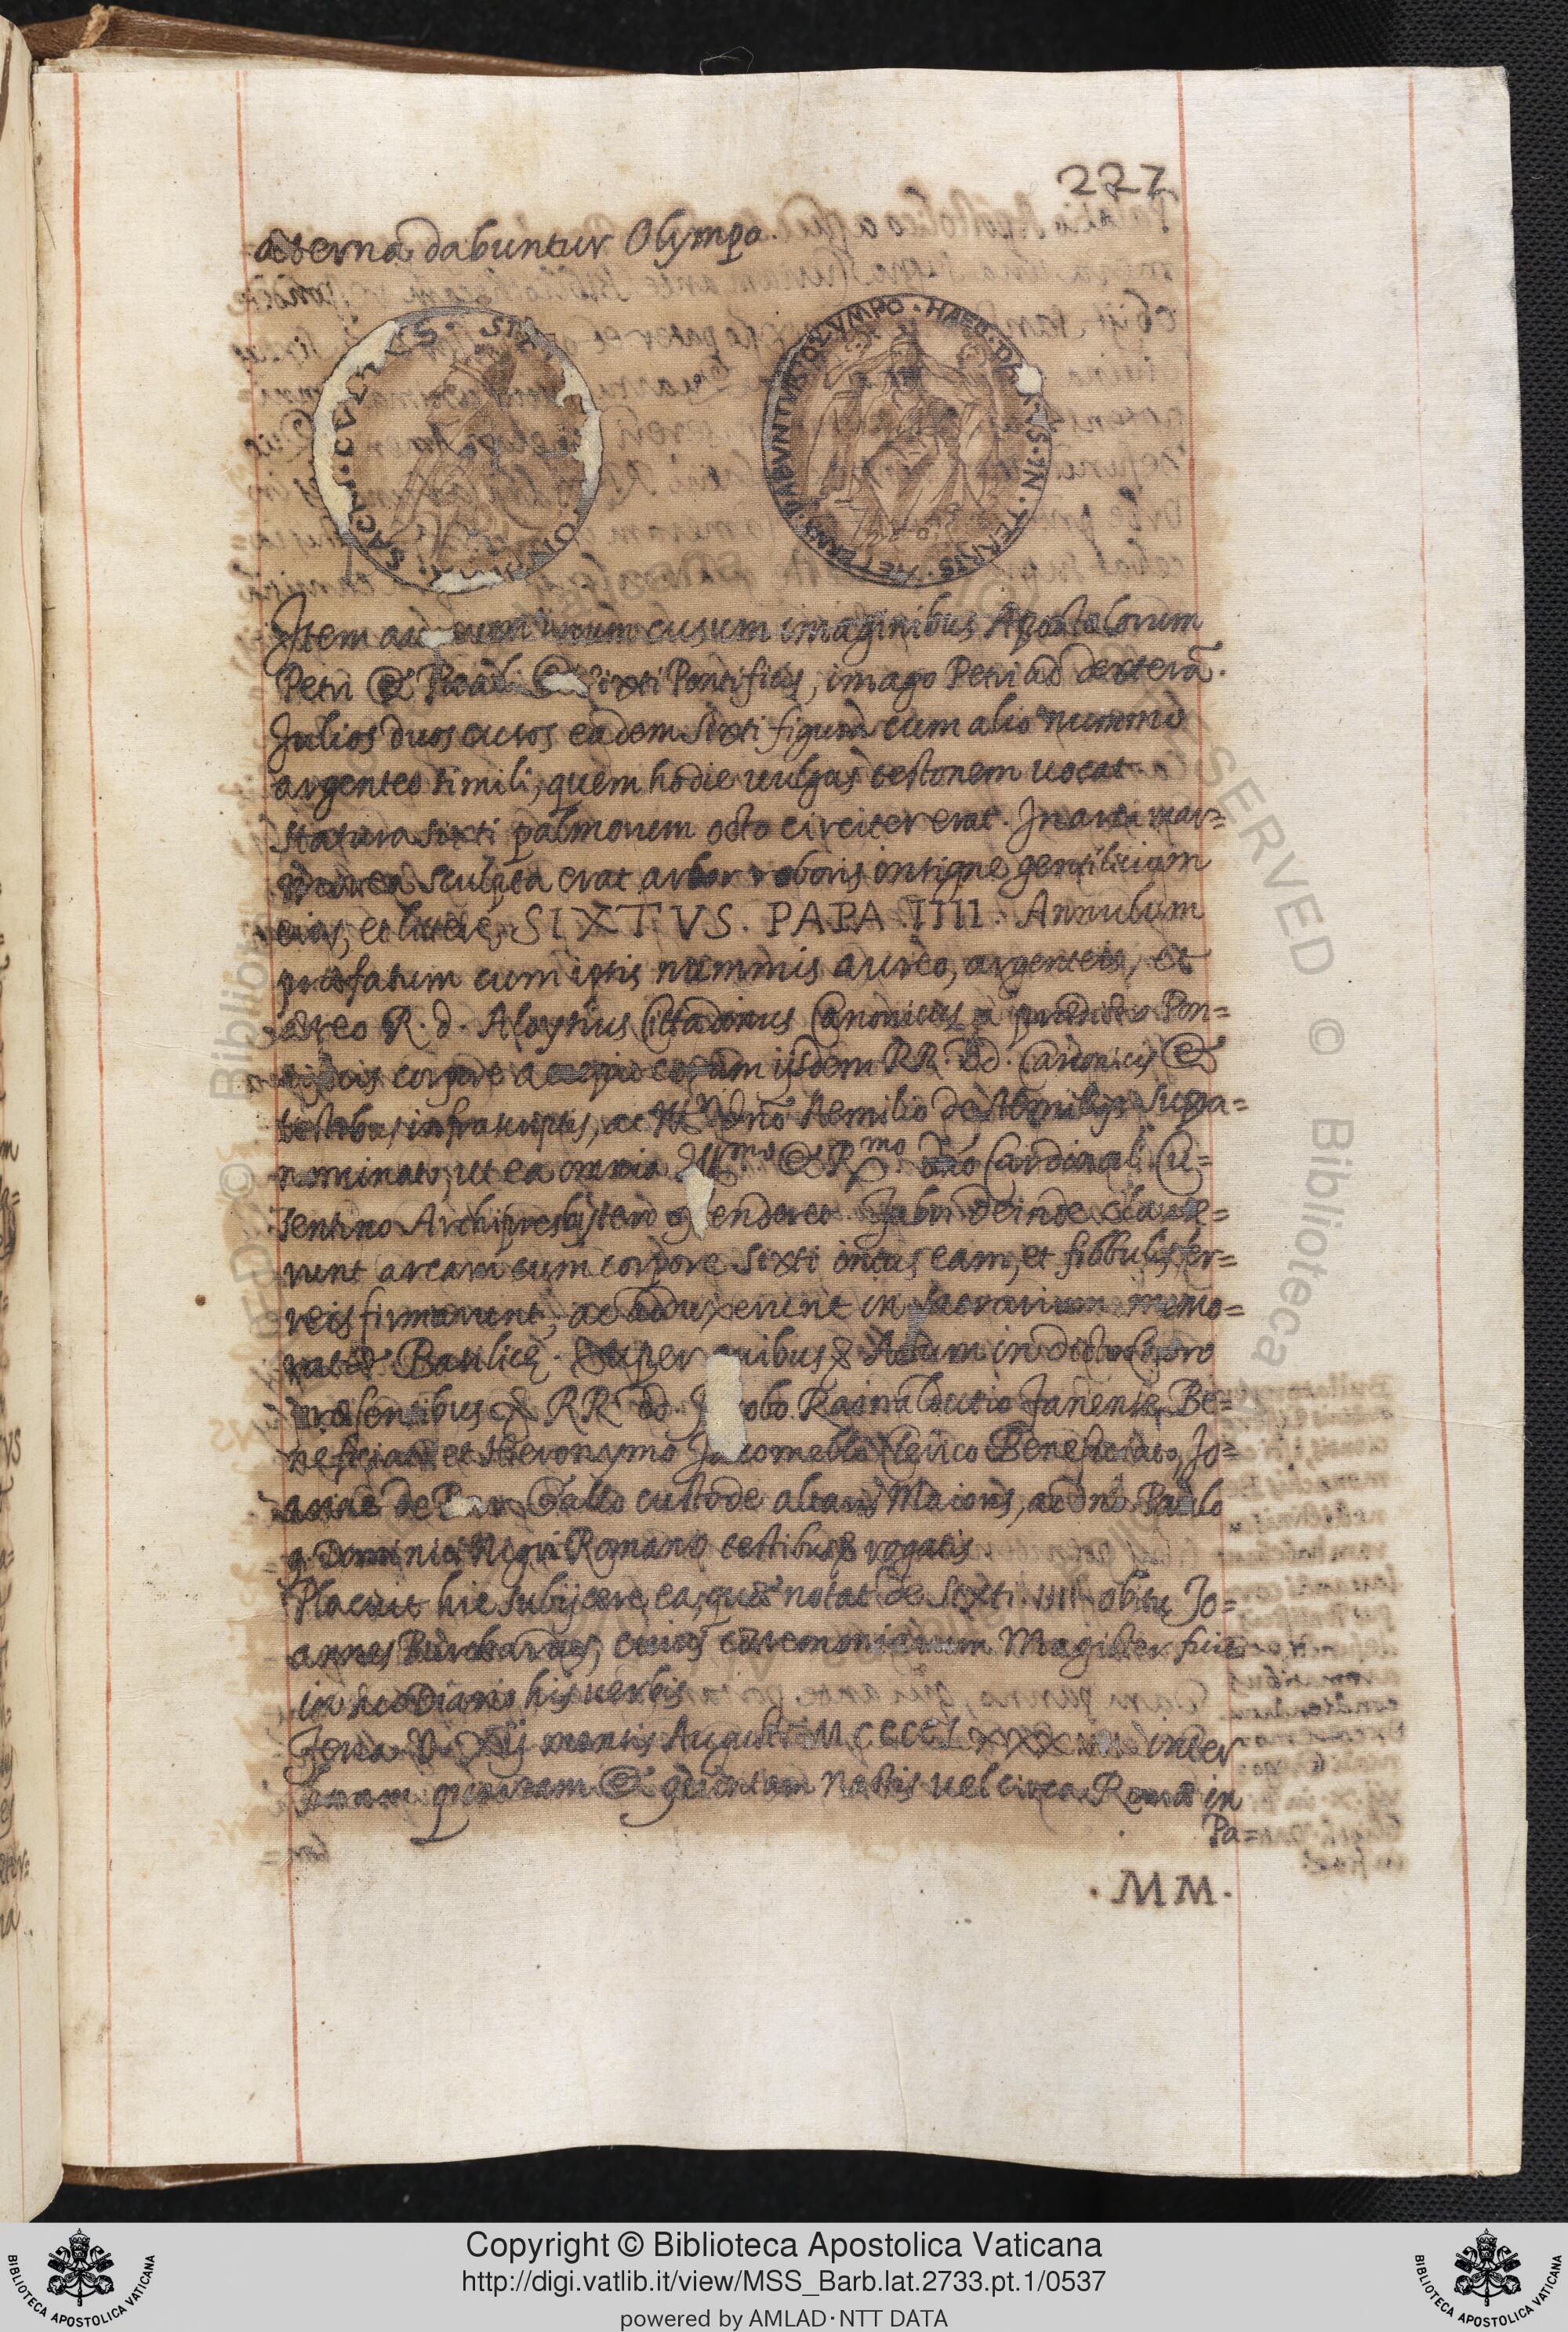 227
aeterna dabuntur Olympo.
SACRI · CVLTVS ·
HAEC · DAMVS · IN · TERRIS · AETERNA · DABVNTVR · OLYMPO ·
Item aureum unum cusum imaginibus Apostolorum
Petri & Pauli & Sixti Pontificis, imago Petri ad dexterã.
Julios duos cusos eadem Sixti figura cum alio nummo
argenteo simili, quem hodie vulgus testonem vocat
statura Sixti palmorum octo circiter erat. In arca mar=
morea sculpta erat arbor roboris insigne gentilicium
eius, et litterę, SIXTVS. PAPA. IIII. Annulum
praefatum cum ipsis nummis aureo, argenteis, et
aereo R. d. Aloysius Cittadinus Canonicus à praedicto Pon=
tificis corpore accepit coram ijsdem RR. dd. Canonicis &
testibus infrascriptis, ac dno Aemilio de supra=
nominato, ut ea omnia Illmo & Rmo dño Cardinali Cu=
sentino Archipresbytero ostenderet. Fabri deinde clause=
runt arcam cum corpore Sixti intus eam, et fibbulis fer=
reis firmarunt, ac adduxerunt in sacrarium memo=
ratae Basilicę. Super quibus & Actum in dicto Choro
praesentibus RR dd. Jacobo Rainalducio Fanensę, Be=
neficiato et Hieronymo Jacomello Clerico Beneficiato, Jo=
anne de Gallo custode altaris Maioris, ac dno Paulo
q. Dominici Nigri Romano testibus & rogatis
Placuit hic subijcere, ea, quae notat de Sixti. IIII. obitu Jo=
annes Burchardus, cuius caeremoniarum Magister fuit
in suo Diario his verbis
Feria V. XII mensis Augusti MCCCCLXXXIIII inter
horam quartam & quintam noctis vel circa Romae in
Pa=
· MM ·
Copyright © Biblioteca Apostolica Vaticana
http://digi.vatlib.it/view/MSS_Barb.lat.2733.pt.1/0537
powered by AMLAD·NTT DATA
BIBLIOTECA APOSTOLICA VATICANA
BIBLIOTECA APOSTOLICA VATICANA